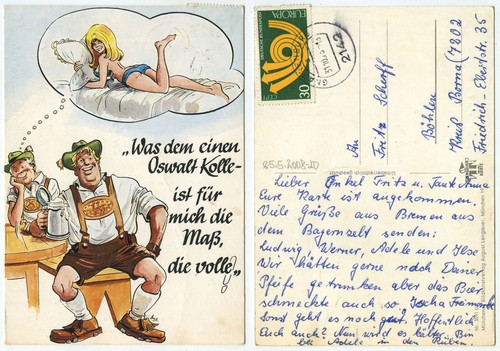 „Was dem einen
Oswalt Kolle-
ist für
mich die
Maß,
die volle„
EUROPA
DEUTSCHE BUNDESPOST
CEPT
30
2142
An
Fritz Scherff
Böhlen
Kreis Borna (7202
Friedrich-Ebertstr. 35
25.5.2008-10
Lieber Onkel Fritz u. Tante Anna
Eure Karte ist angekommen.
Viele Grüße aus Bremen aus
dem Bayernzelt senden:
Ludwig, Werner, Adele und Ilse
Wir hätten gerne noch Deine
Pfeife getrunken aber das Bier
schmeckte auch so
Sonst geht es noch gut. Hoffentlich
Euch auch? Nun wird es kälter. Bin
bei Adele in den Rüben.